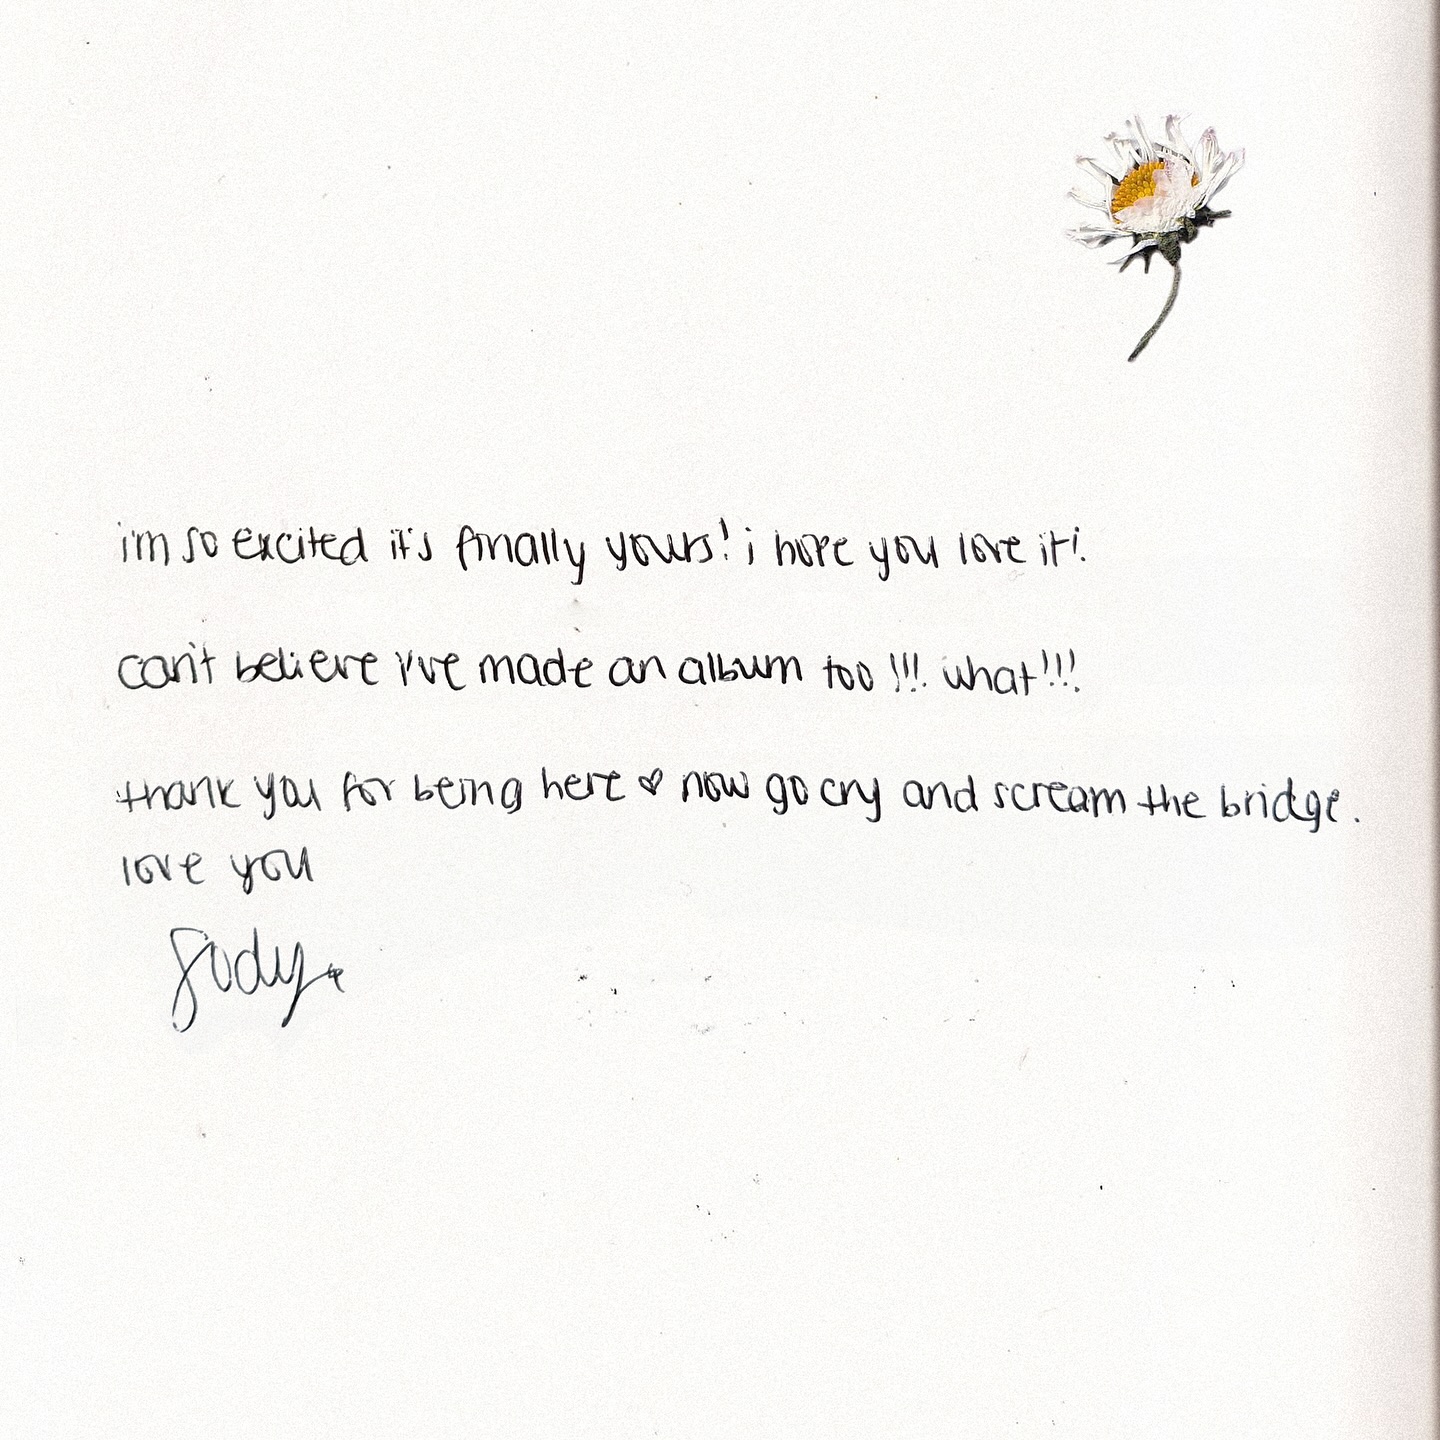 i'm so excited it's finally yours! i hope you love it!
can't believe i've made an album too!!! what!!!
thank you for being here ♡ now go cry and scream the bridge.
love you
Sody x